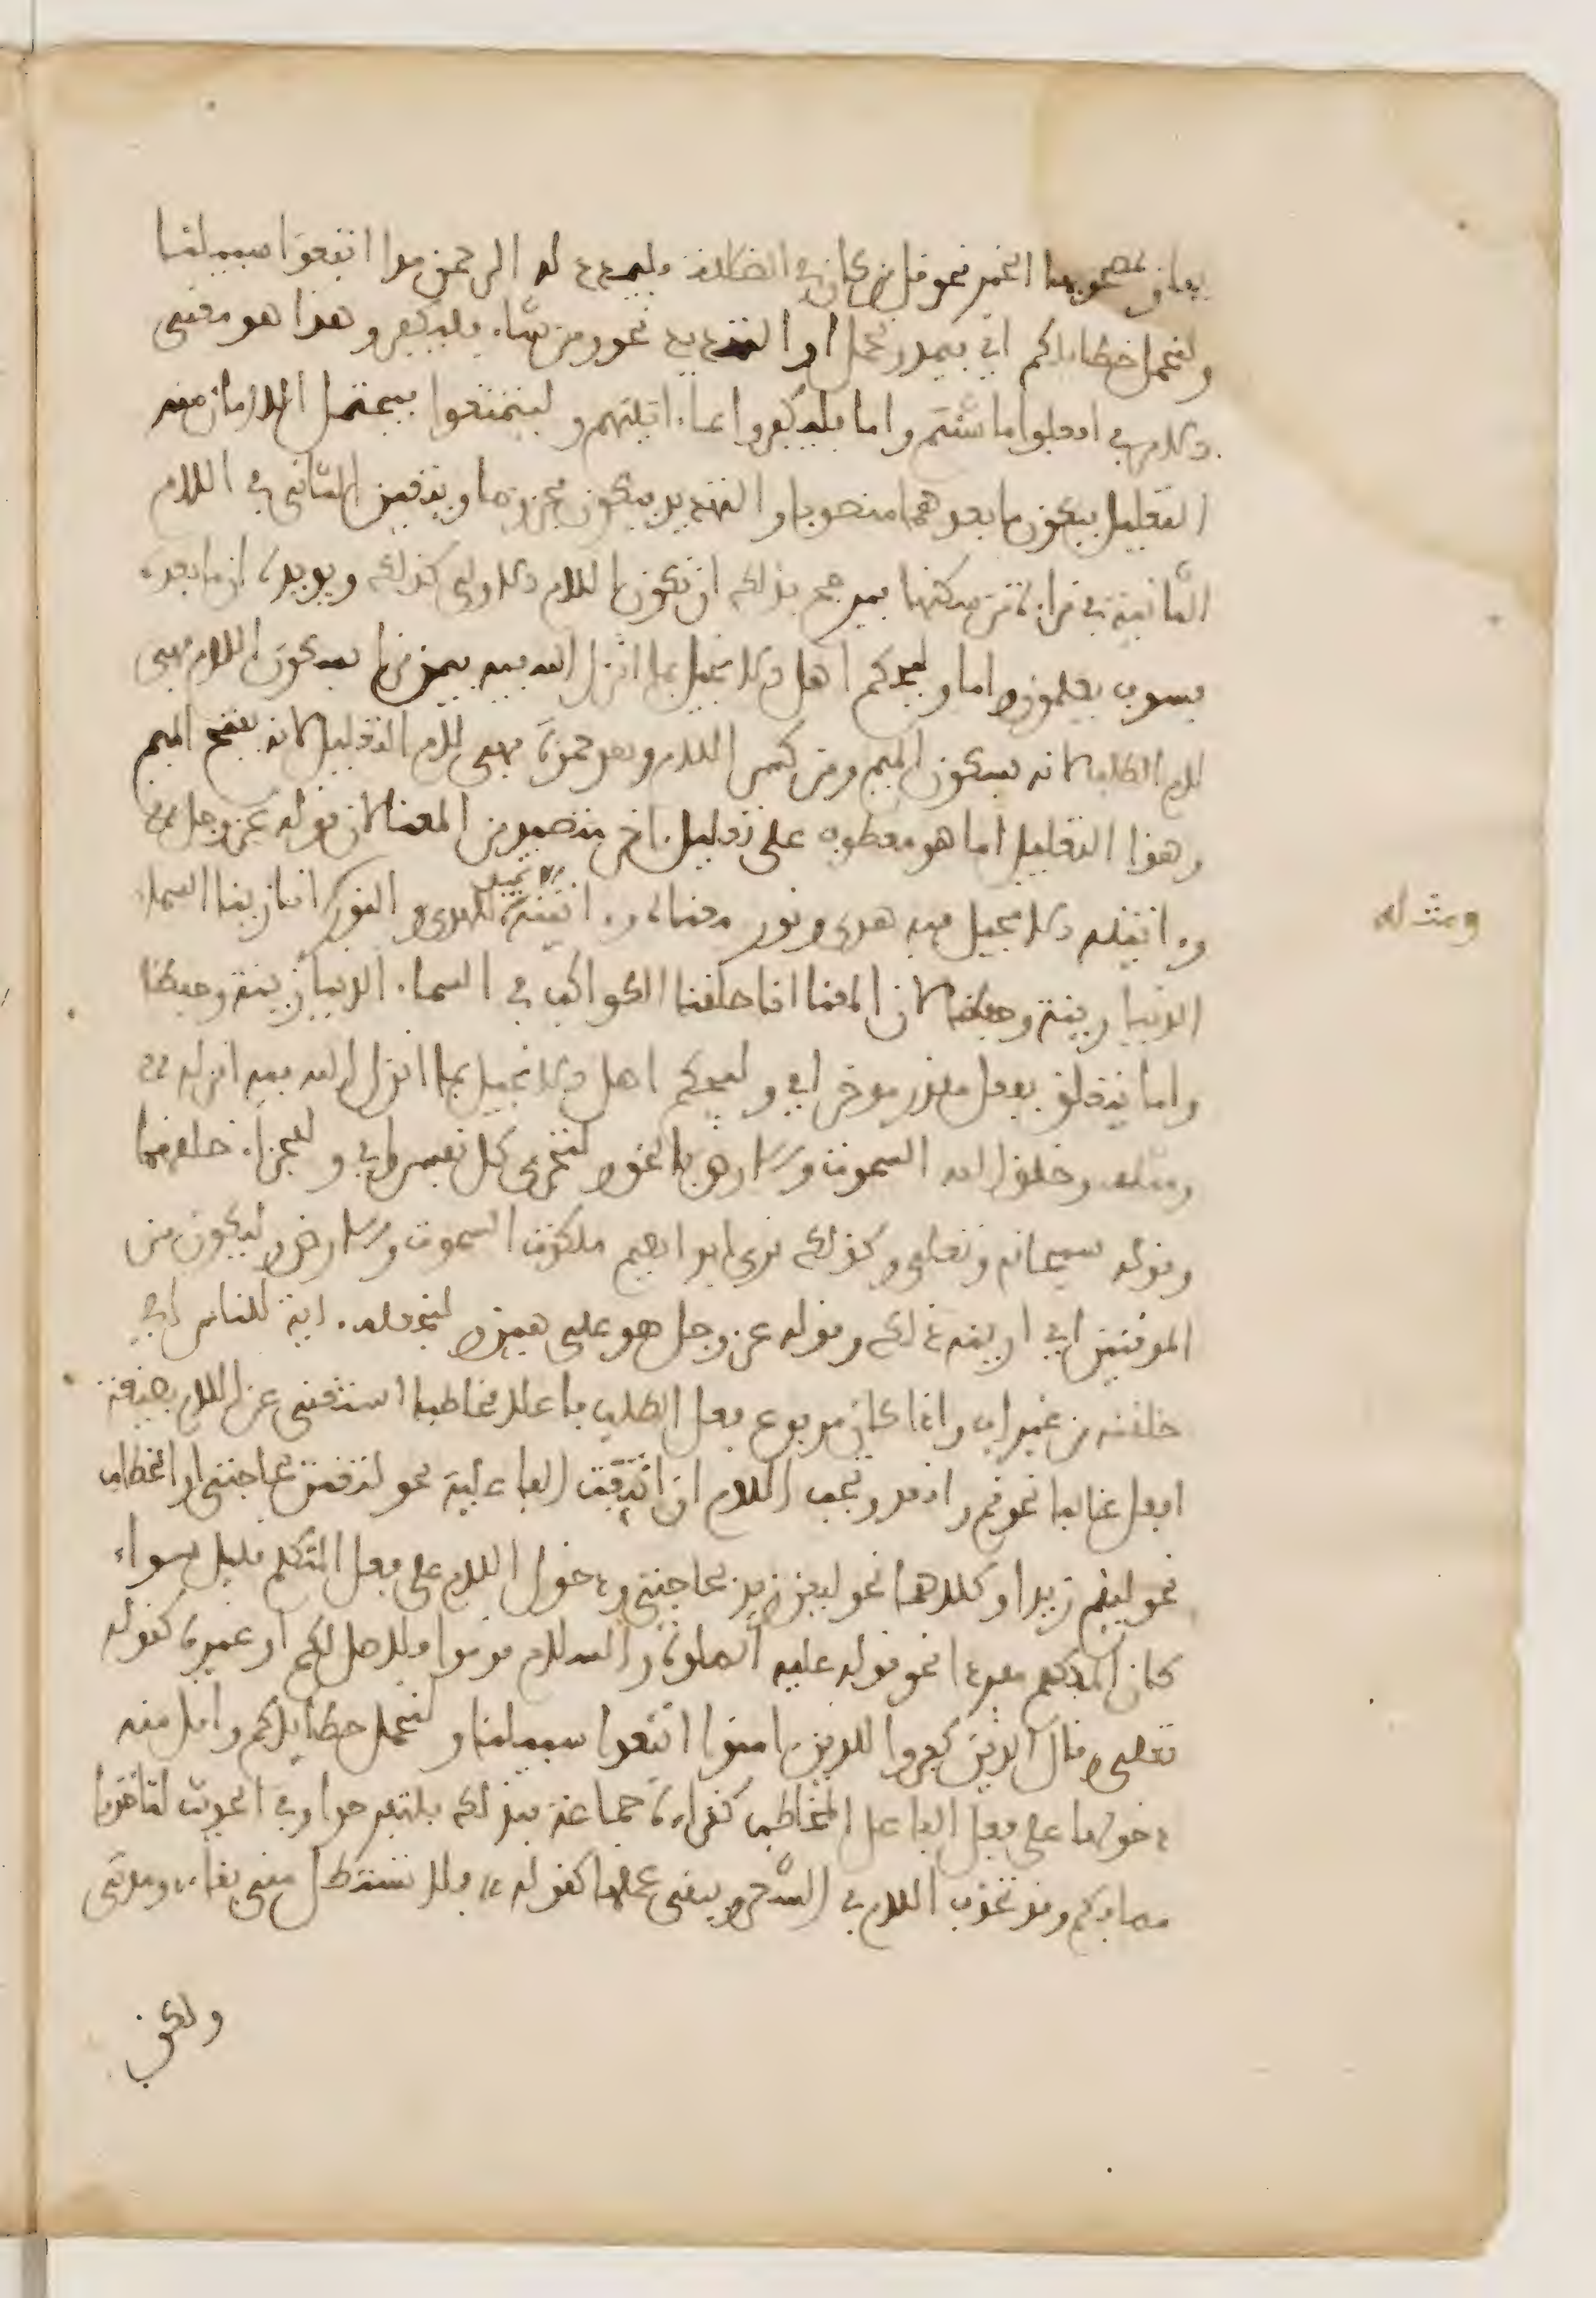 يعان بمصحوبها الخبر نحو قل من كان في الضلالة فليمدد له الرحمن مدا اتبعوا سبيلنا
ولنحمل خطاياكم اي فيمد ونحمل او التهديد نحو ومن شاء فليكفر وهذا هو معنى
الامر في افعلوا ما شئتم واما فليكفروا بما ءاتينهم وليتمتعوا فيحتمل اللامان منه
التعليل فيكون ما بعدهما منصوبا والتهديد فيكون مجزوما ويتعين الثاني في اللام
الثانية في قراءة من سكنها فيرجح بذلك ان تكون اللام الاولى كذلك ويويده ان ما بعده
فسوف يعلمون واما وليحكم اهل الانجيل بما انزل الله فيه فيمن قرا بسكون اللام فهي
لام الطلب لانه بسكون الميم ومن كسر اللام وهو حمزة فهي لام التعليل لانه بفتح الميم
وهذا التعليل اما هو معطوف على تعليل ءاخر متصيد من المعنا لان قوله عز وجل
وءاتينه الانجيل فيه هدى ونور معناه وءاتينه الانجيل للهدى والنور انا زينا السماء
ومثله
الدنيا بزينة وحفظا لان المعنا انا خلقنا الكواكب في السماء الدنيا زينة وحفظا
واما يتعلق بفعل مقدر موخر اي وليحكم اهل الانجيل بما انزل الله فيه انزله
ومثله وخلق الله السموت والارض بالحق ولتجزى كل نفس اي وللجزاء خلقهما
وقوله سبحانه وتعلى وكذلك نري ابراهيم ملكوت السموت والارض وليكون من
الموقنين اي اريناه ذلك وقوله عز وجل هو علي هين ولنجعله ءاية للناس اي
خلقته من غير اب واذا كان مربوع فعل الطلب فاعلا مخاطبا استغنى عن اللام بصيغة
افعل غالبا نحو قم واقعد وتجب اللام ان انتفت الفاعلية نحو لتعن بحاجتي او الخطاب
نحو ليقم زيد او كلاهما نحو ليعن زيد بحاجتي ودخول اللام على فعل المتكلم قليل سواء
كان المتكلم مفردا نحو قوله عليه الصلوة والسلام قوموا فلاصل لكم او غيره كقوله
تعلى وقال الذين كفروا للذين ءامنوا اتبعوا سبيلنا ولنحمل خطاياكم واقل منه
دخولها على فعل الفاعل المخاطب كقراءة جماعة فبذلك فلتفرحوا وفي الحديث لتاخذوا
مصافكم وقد تحذف اللام في الشعر ويبقى عملها كقوله فلا تستطل مني بقاءي ومدتي
ولكن